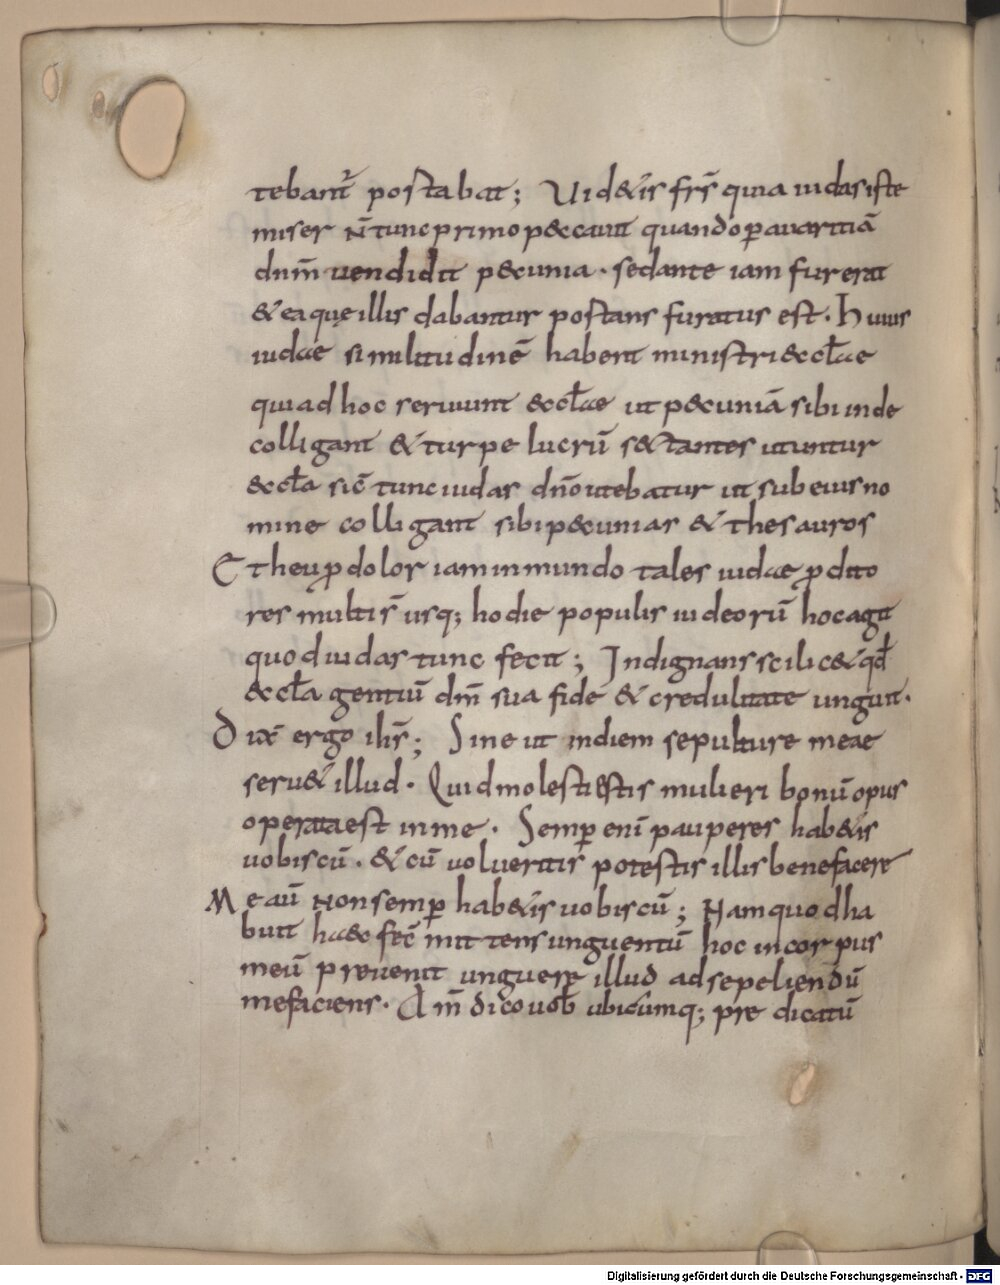 tebant̄ postabat; Uid&is frs̄ quia iudas iste
miser n̄ tunc primo peccauit quando p̱ auaritiā
dnm̄ uendidit pecunia. sed ante iam fur erat
& ea quę illis dabantur postans furatus est. Huius
iudae similitudinē habent ministri eccłae
qui ad hoc seruiunt eccłae ut pecuniā sibi inde
colligant & turpe lucrū sectantes utuntur
eccła sic̄ tunc iudas dn̄o utebatur ut sub eius no
mine colligant sibi pecunias & thesauros
Et heu ꝓ dolor iam in mundo tales iudae ꝓdito
res multi s̄ usq; hodie populis iudeorū hoc agit
quod iudas tunc fecit; Indignans scilic& qđ
eccła gentiū dn̄m sua fide & credulitate unguit.
Dix̄ ergo ihs̄; Sine ut in diem sepulture meae
seru& illud. Quid molesti estis mulieri bonū opus
operata est in me. Semp̱ enī pauperes hab&is
uobiscū. & cū uolueritis potestis illis benefacere
Me aū non semp̱ hab&is uobiscū; Nam quod ha
buit haec fec̄ mittens unguentū hoc in corpus
meū preuenit unguere illud ad sepeliendū
me faciens. Am̄ dico uob̄ ubicumq; predicatū
Digitalisierung gefördert durch die Deutsche Forschungsgemeinschaft - DFG